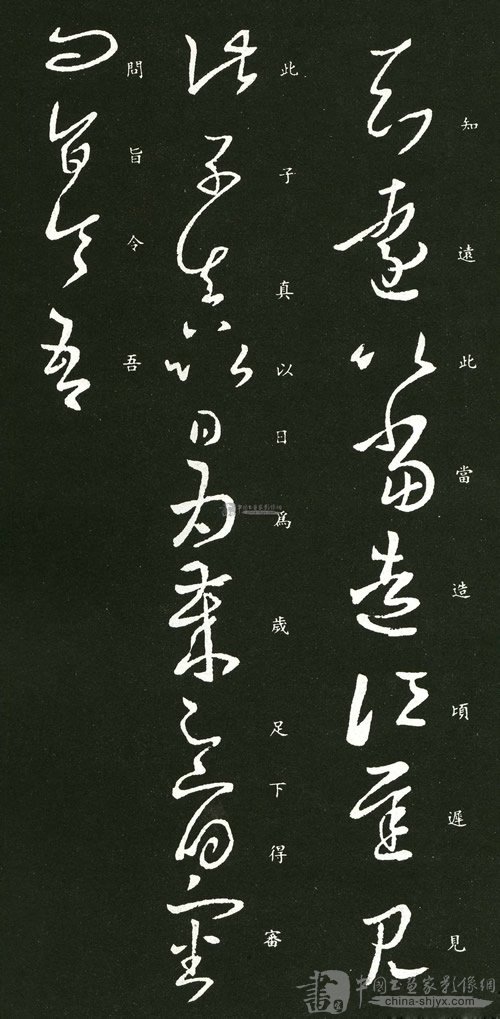 知遠此當造頃遲見
此子真以日為歲足下得審
問旨令吾
書 中國書畫家影像網
china-shjyx.com